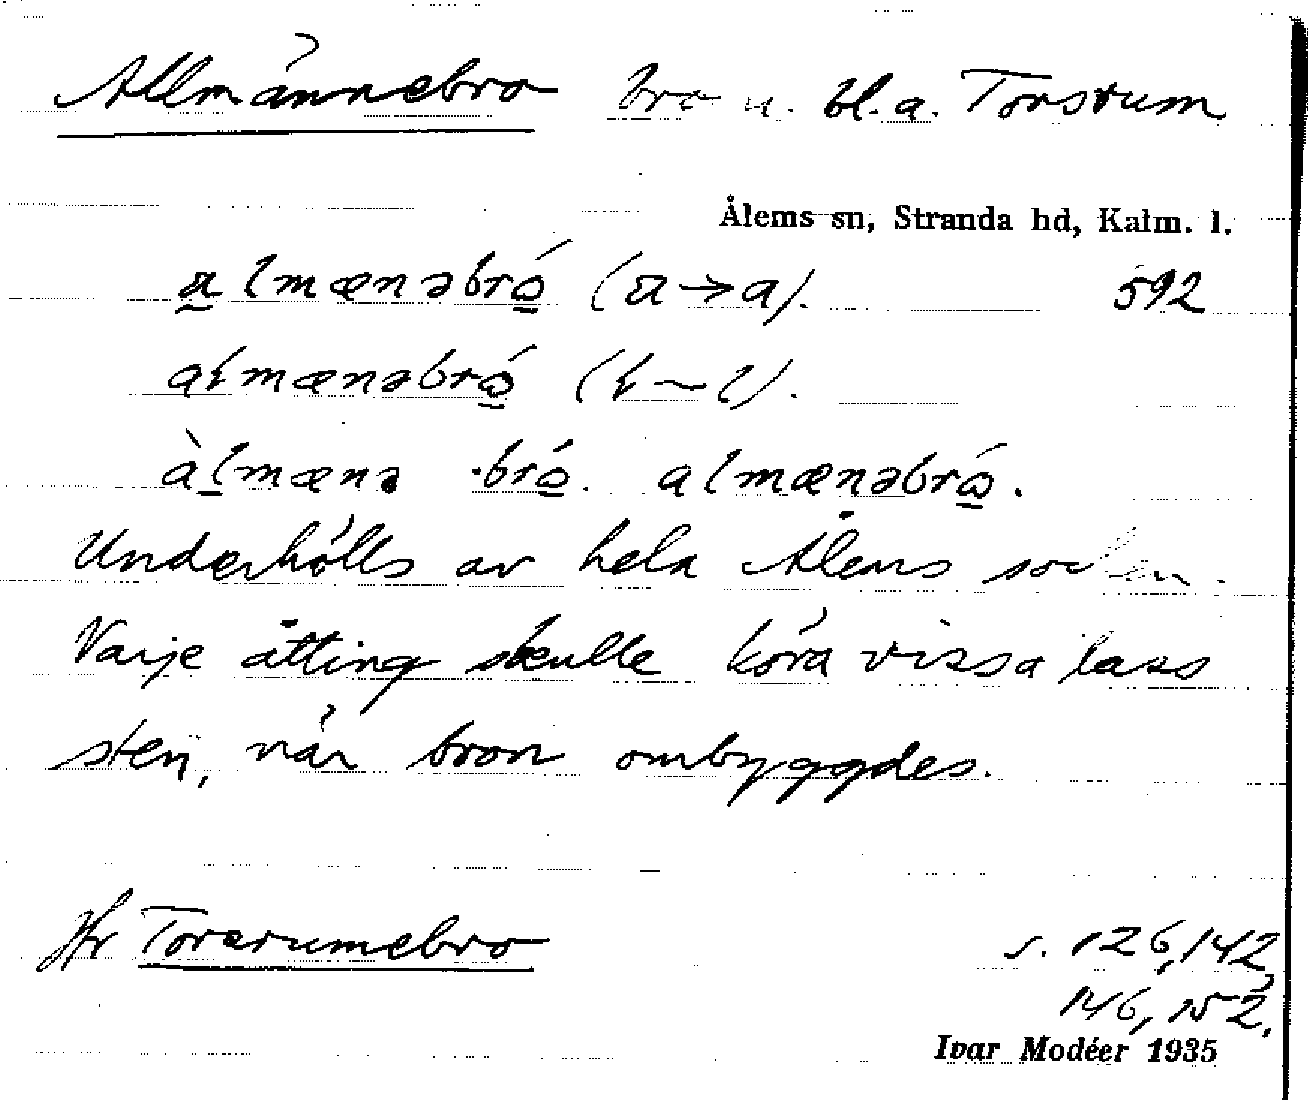 Allmännebro bro u. bl.a. Torsrum
Ålems sn, Stranda hd, Kalm. l.
almænəbró (a→a). 592
ałmænəbró (ł~l).
àlmænə ·bró. almænəbró.
Underhölls av hela Ålems socken.
Varje åtting skulle köra vissa lass
sten, när bron ombyggdes.
Jfr Torsrumebro s. 126, 142,
146, 152,
Ivar Modéer 1935